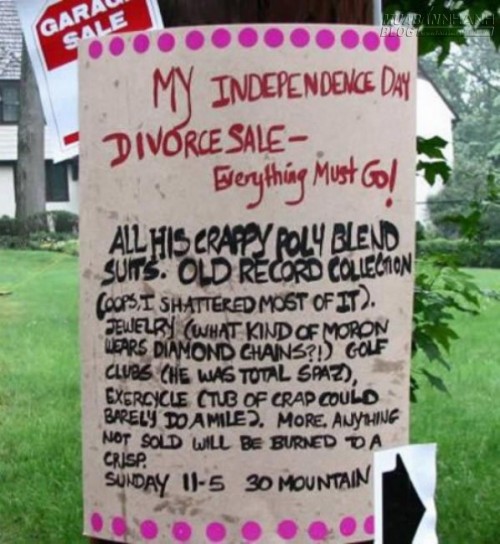 GARAG
SALE
MY INDEPENDENCE DAY
DIVORCE SALE –
Everything Must Go!
ALL HIS CRAPPY POLY BLEND
SUITS. OLD RECORD COLLECTION
(OOPS, I SHATTERED MOST OF IT).
JEWELRY (WHAT KIND OF MORON
WEARS DIAMOND CHAINS?!) GOLF
CLUBS (HE WAS TOTAL SPAZ),
EXERCYCLE (TUB OF CRAP COULD
BARELY DO A MILE). MORE. ANYTHING
NOT SOLD WILL BE BURNED TO A
CRISP.
SUNDAY 11-5 30 MOUNTAIN